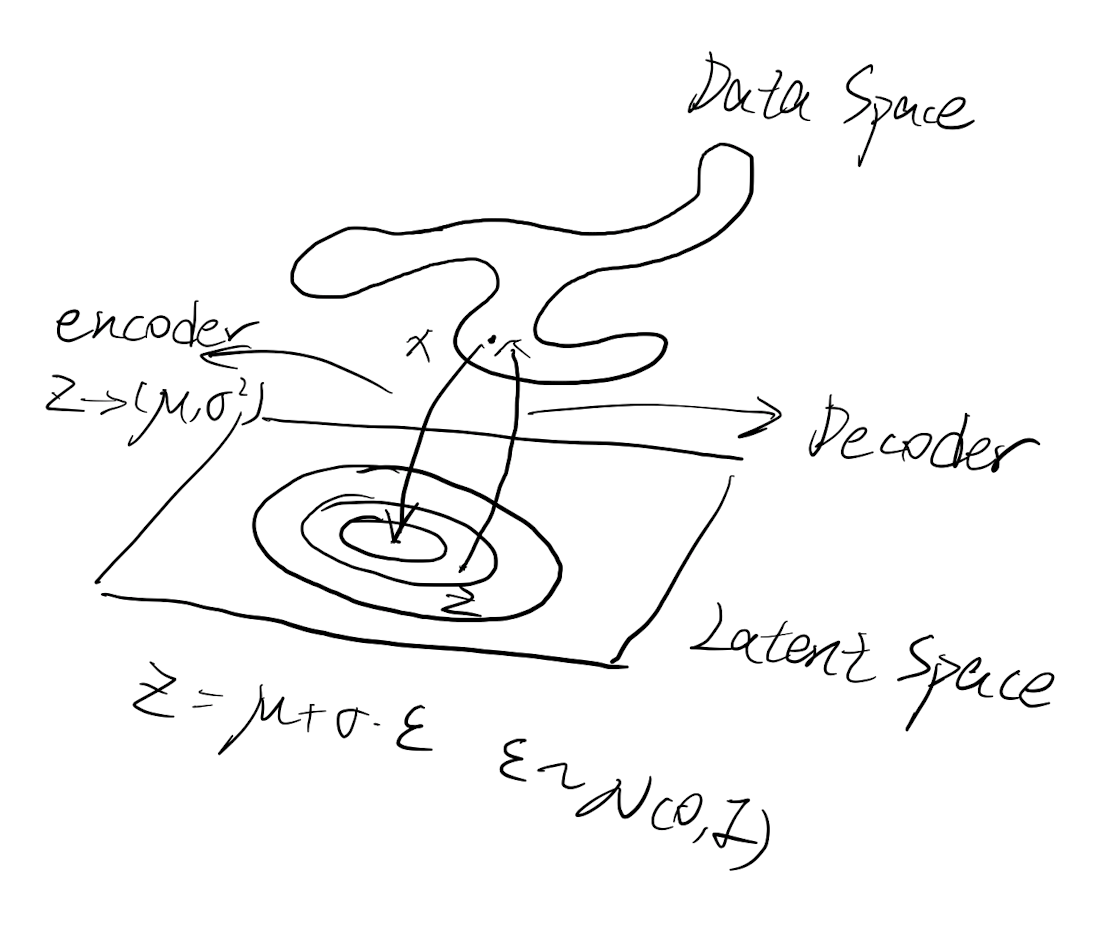 Data Space
encoder
x
Z→(μ,σ²)
Decoder
z
Latent Space
Z = μ+σ·ε
ε~N(0,I)